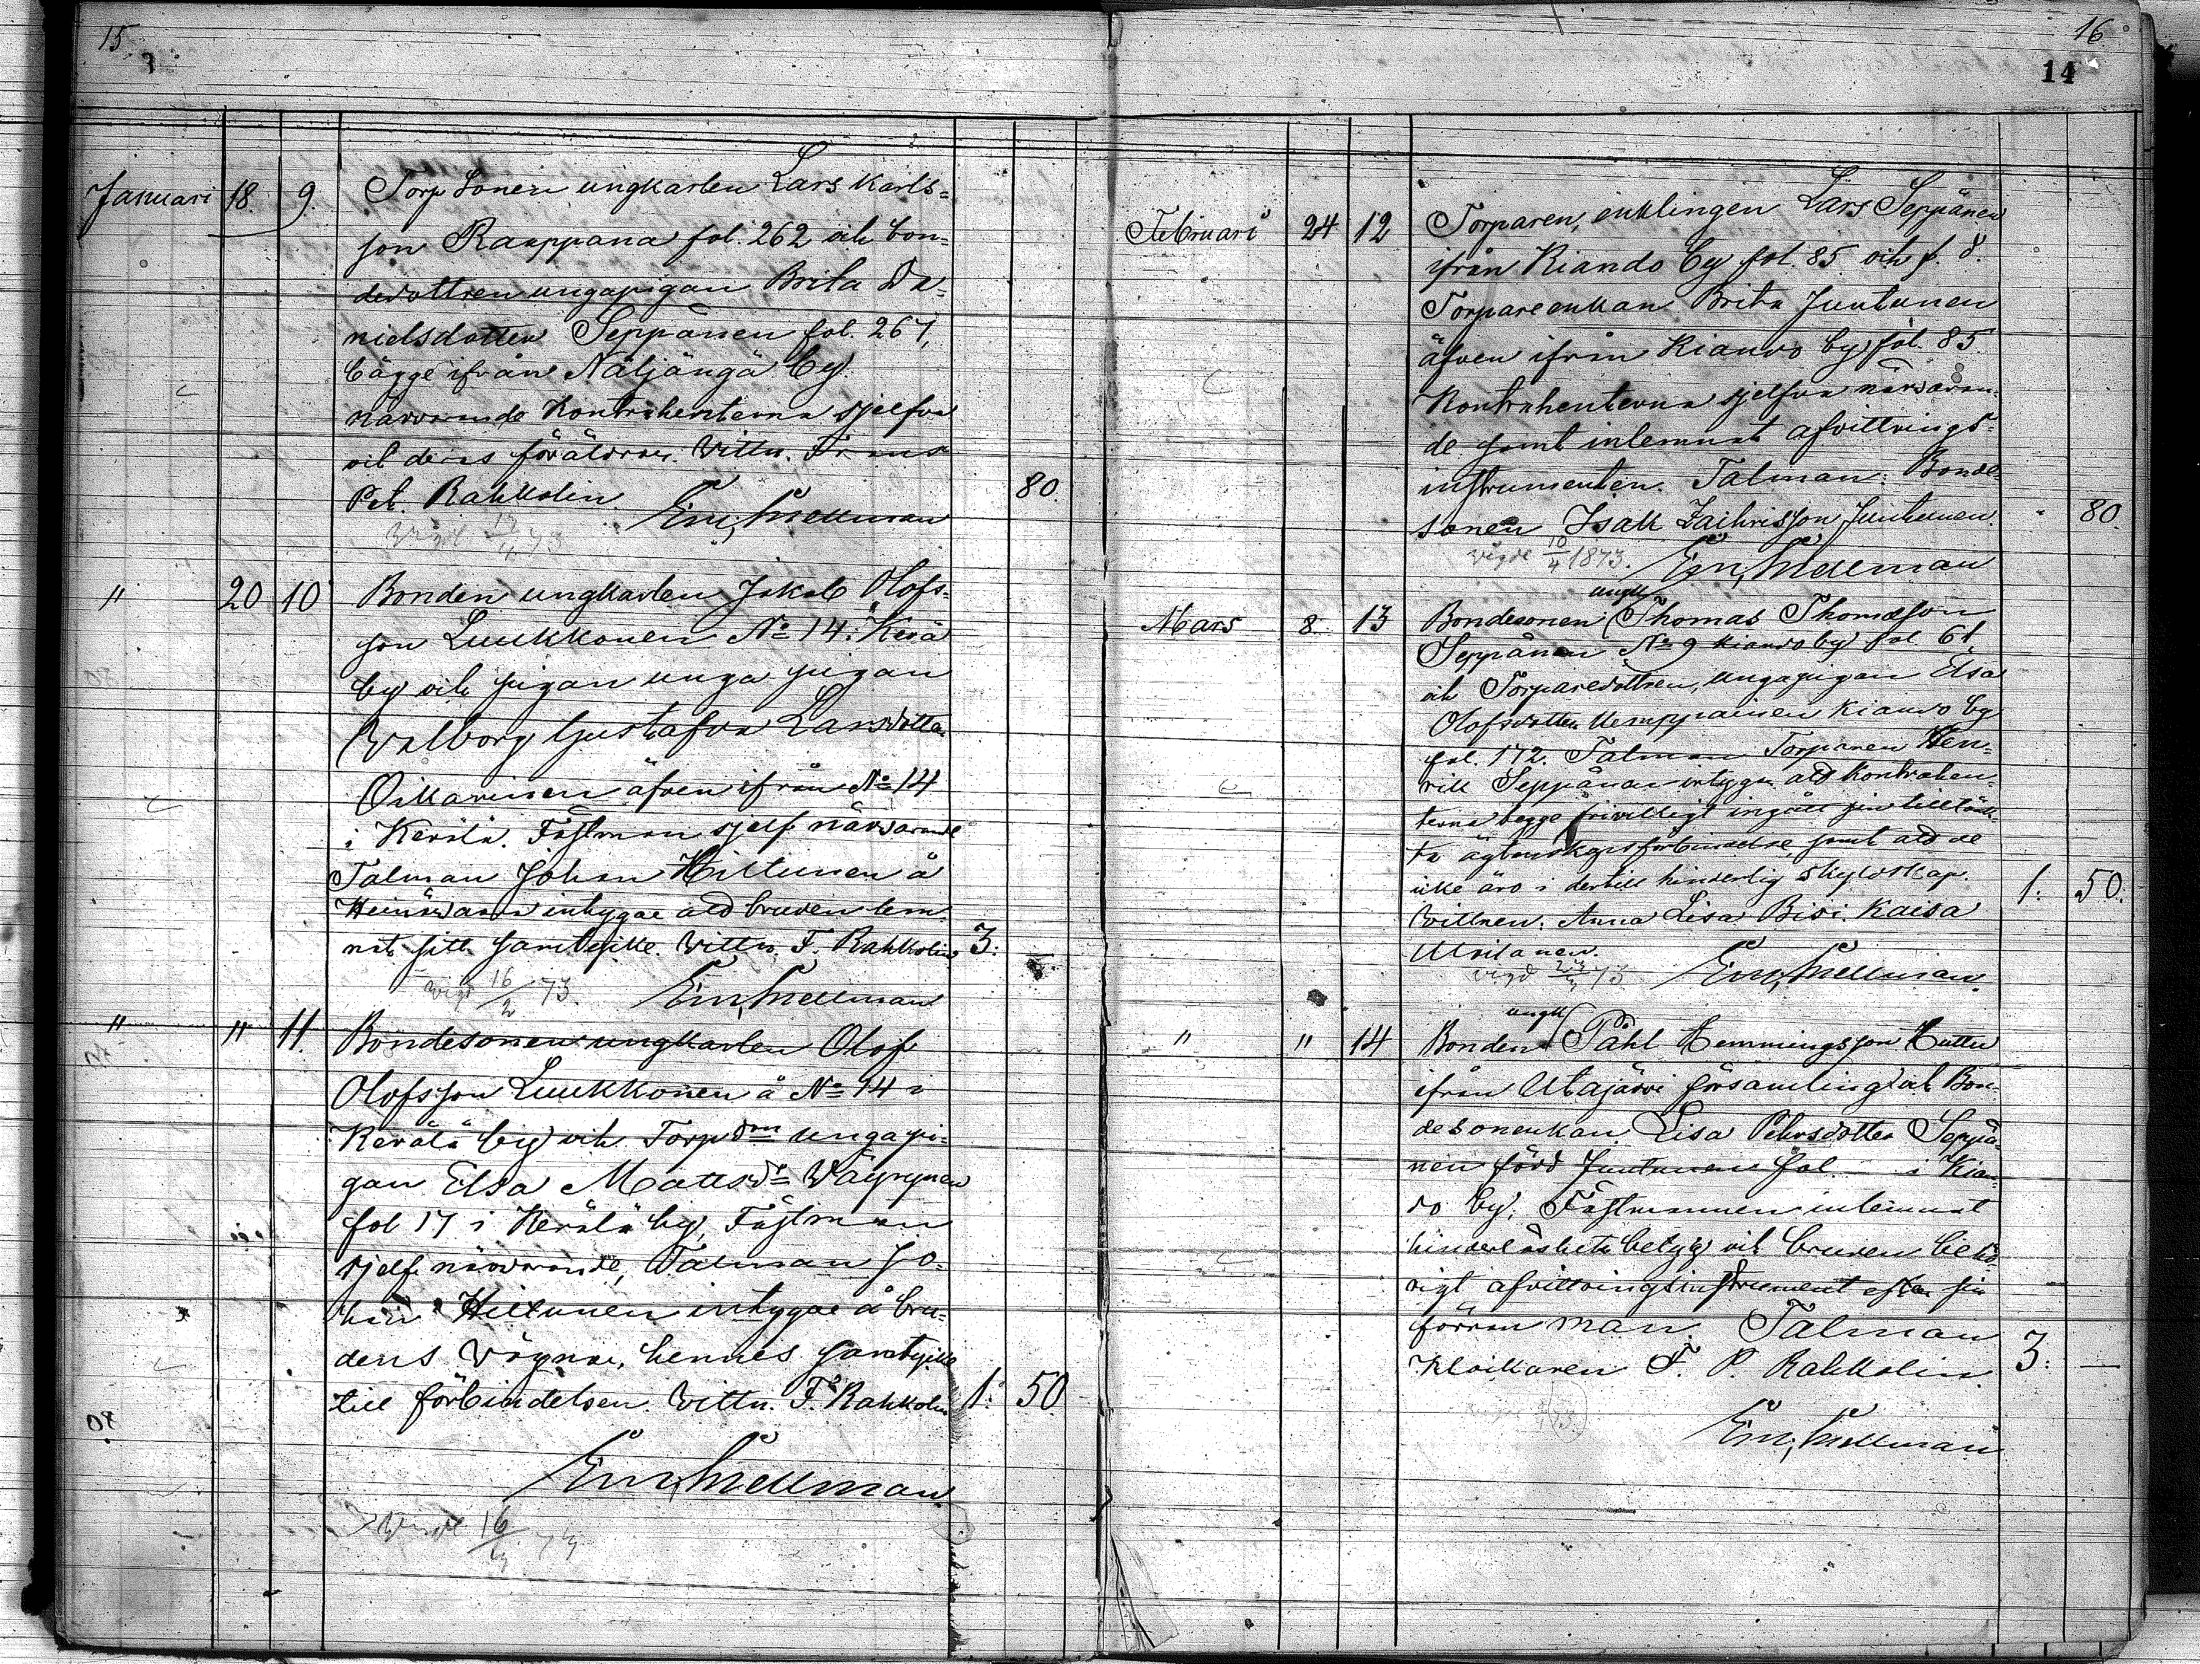 15
Januari 18. 9. Torp Sonen ungkarlen Lars Karls=
son Raappana fol. 262 och bon=
dedottren ungapigan Brita Da=
nielsdotter Seppänen fol. 267,
bägge ifrån Näljängä by.
närvarande Kontrahenterna sjelfva
och deras föräldrar. Vittn. Frans
Pet. Rahkolin. 80.
Em. Snellman
Vigde 4 73
" 20 10 Bonden ungkarlen Jakob Olofs=
son Luukkonen No 14. Kerälä
by och pigan unga pigan
Walborg Gustafva Larsdotter
Oikarinen äfven ifrån No 14
i Kerälä. Fästman sjelf närvarande
Talman Johan Hiltunen å
intygar att bruden lem=
nat sitt samtycke. Vittn. F. Rahkolin 3: —
vigd 16/2 73. Em. Snellman
" " 11. Bondesonen ungkarlen Olof
Olofsson Luukkonen å No 14 i
Kerälä by och Torp dra unga pi=
gan Elsa Mattsdr Väyrynen
fol 17 i Kerälä by, Fästman
sjelf närvarande, Talman Jo=
han Hiltunen intygar å bru=
dens vägnar, hennes samtycke
till förbindelsen. Vittn. F. Rahkolin 1: 50
Em. Snellman
16 73
16
14
Februari 24 12 Torparen, enklingen Lars Seppänen
ifrån Kiando by fol. 85. och f. d.
Torpareenkan Brita Juntunen
äfven ifrån Kiando by fol. 85.
Kontrahenterna sjelfva närvaran=
de samt inlemnat afvittrings=
instrumenten. Talman: Bonde=
sonen Isak Zachrisson Juntunen. " 80.
vigde 10/4 1873. Em. Snellman
ungk
Mars 8. 13 Bondesonen Thomas Thomasson
Seppänen No 9 Kiando by fol 61.
och Torparedottren, ungapigan Elsa
Olofsdotter Kemppainen Kiando by
fol. 172. Talman Torparen Hen=
rik Seppänen intygar att Kontrahen=
terna begge frivilligt ingått sin tilltänk=
ta ägtenskapsförbindelse, samt att de
icke äro i dertill hinderlig skyldskap. 1: 50.
Vittnen. Anna Lisa Kaisa
vigd 73 Em. Snellman.
ungk
" " 14 Bonden Påhl Hemmingsson Huttu
ifrån Utajärvi församling och Bon=
desonenkan Lisa Pehrsdotter Seppä=
nen född Juntunen fol — i Kian=
do by; Fästmannen inlemnat
hinderlöshets betyg och bruden behö=
rigt afvittringsinstrument efter sin
förra man. Talman
Klockaren F. P. Rahkolin. 3: —
Em. Snellman